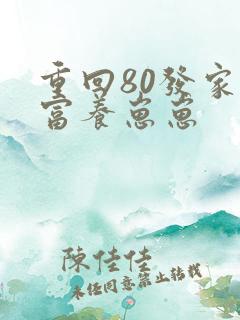 重回80發家
富養崽崽
陳佳佳
未任同意禁止轉載